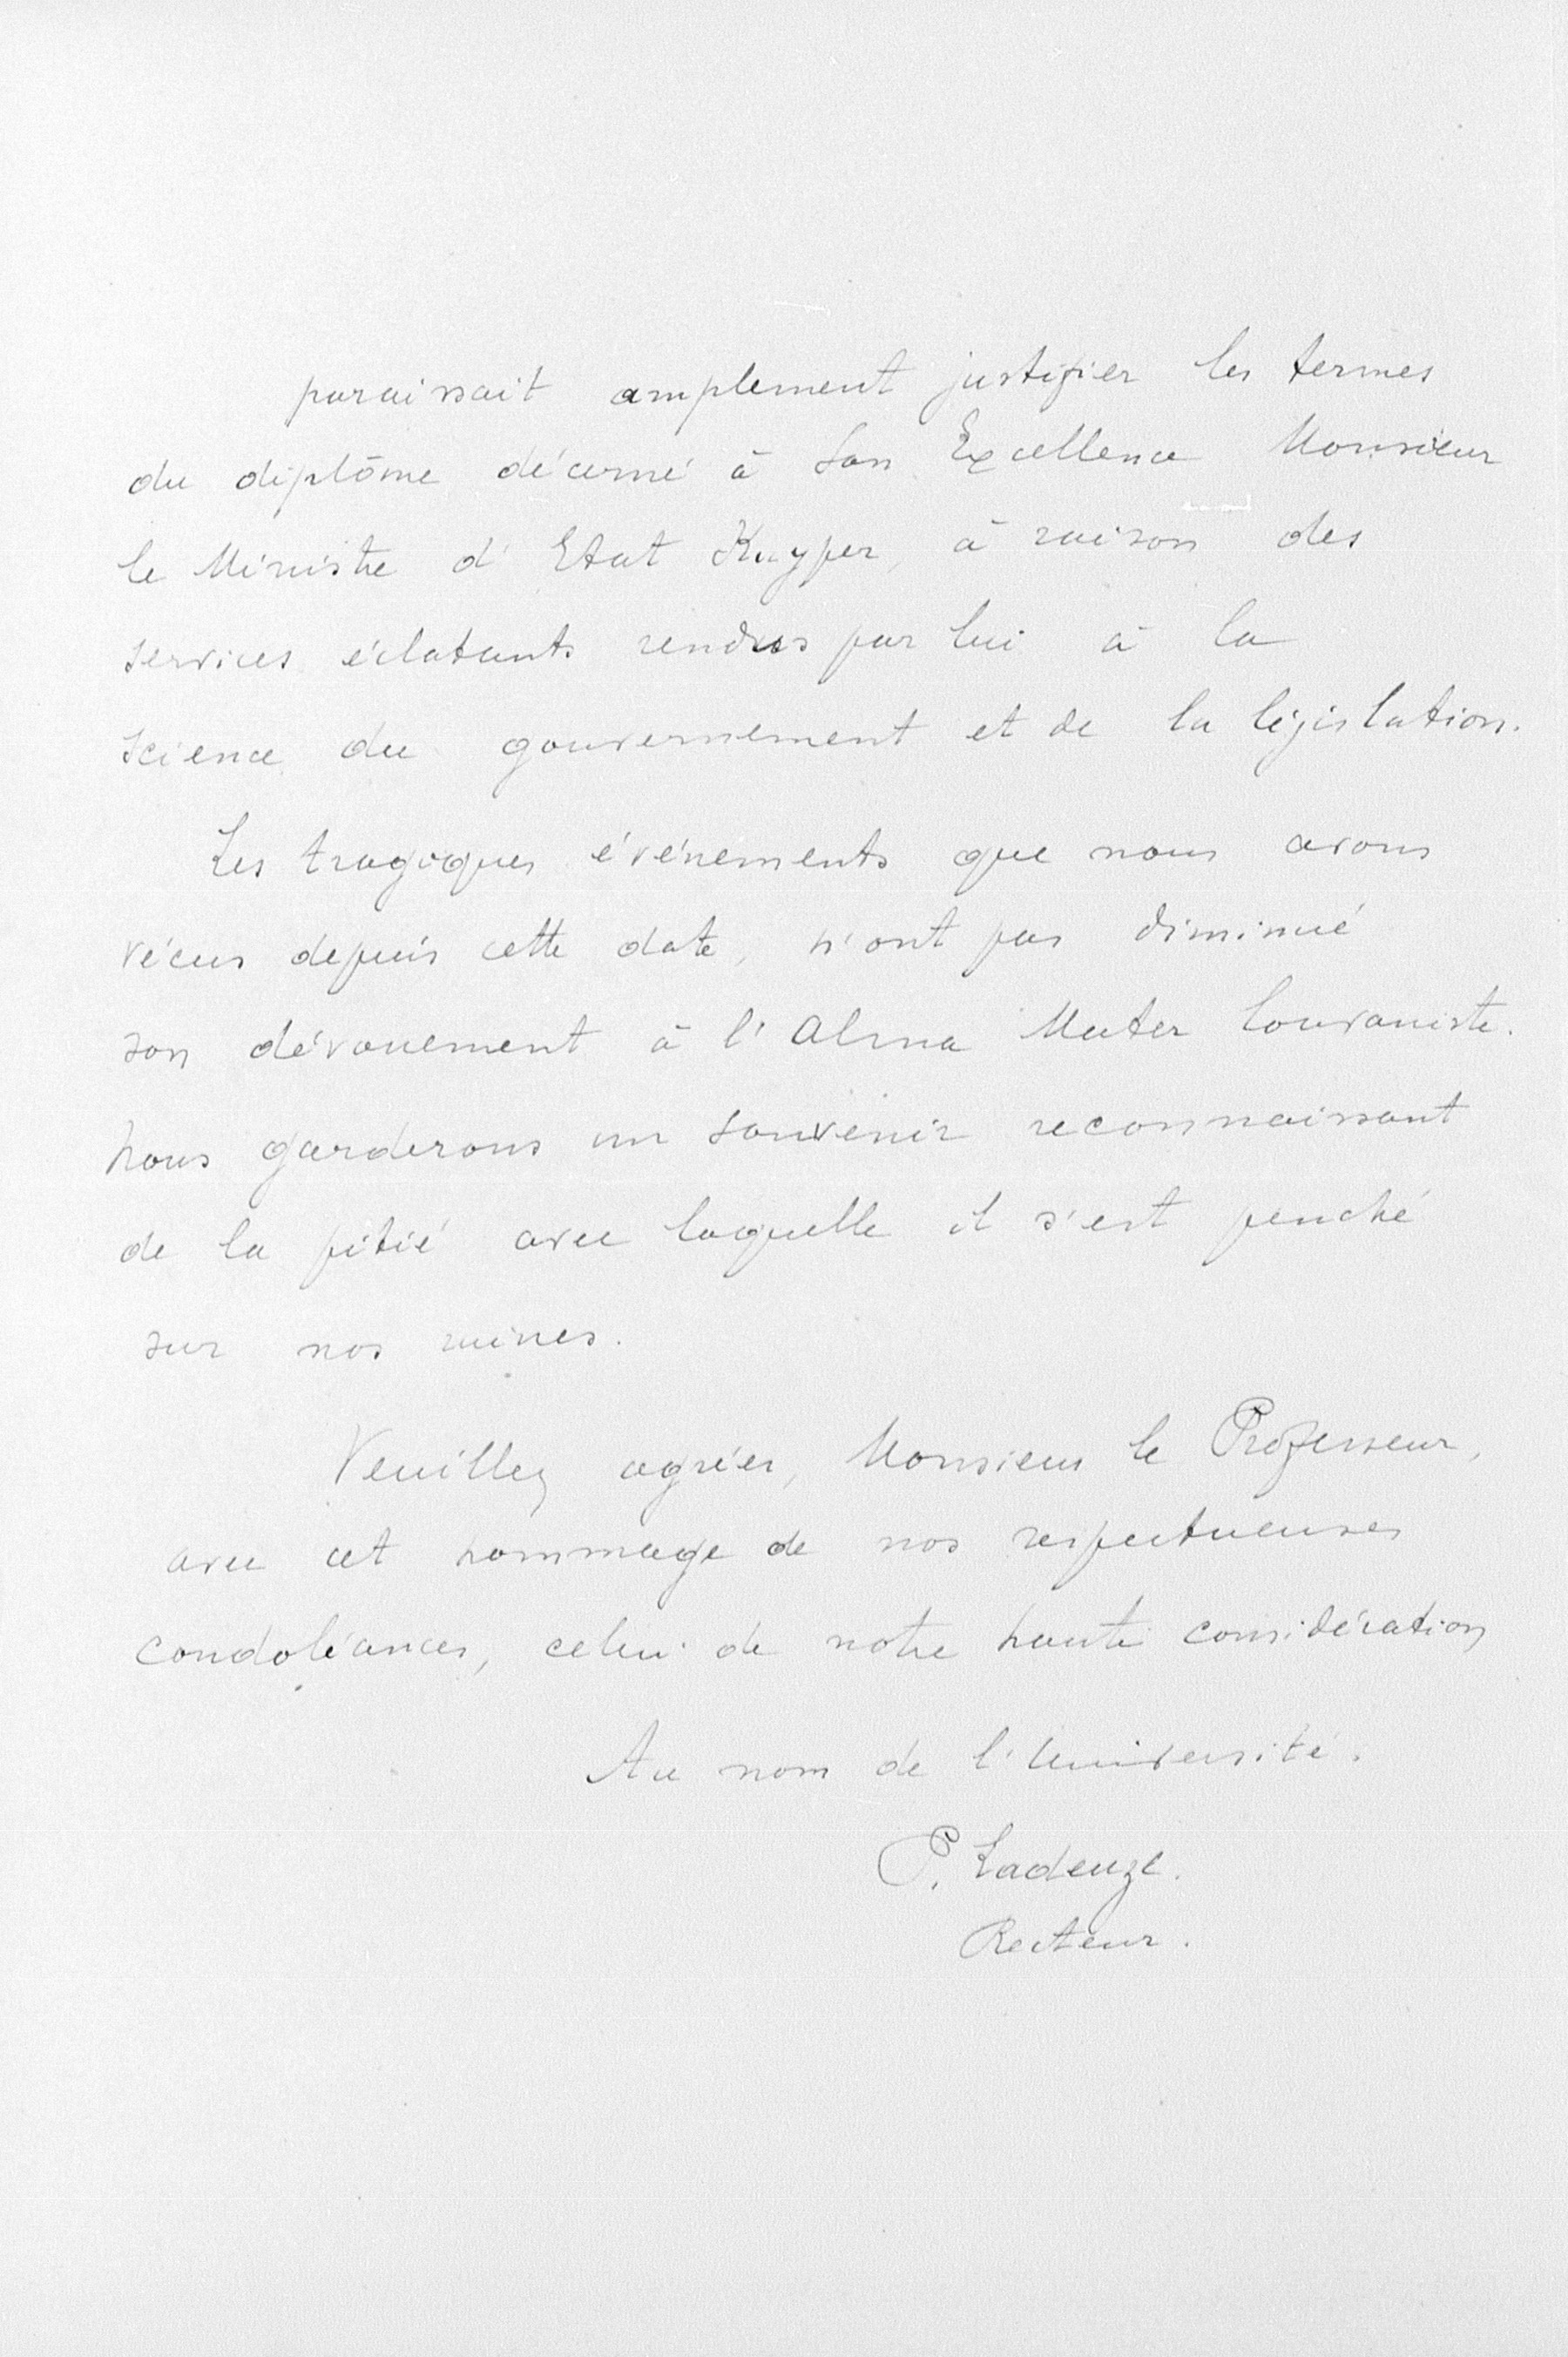 paraissait amplement justifier les termes
du diplôme décerné à Son Excellence Monsieur
le Ministre d'Etat Kuyper, à raison des
services éclatants rendus par lui à la
science du gouvernement et de la législation.
Les tragiques événements que nous avons
vécus depuis cette date, n'ont pas diminué
son dévouement à l'Alma Mater louvaniste.
Nous garderons un souvenir reconnaissant
de la pitié avec laquelle il s'est penché
sur nos ruines.
Veuillez agréer, Monsieur le Professeur,
avec cet hommage de nos respectueuses
condoléances, celui de notre haute considération
Au nom de l'Université.
P. Ladeuze.
Recteur.